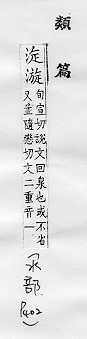 類篇
淀漩旬宣切說文回泉也或不省
又並隨戀切文二重音一
(水部 P402)